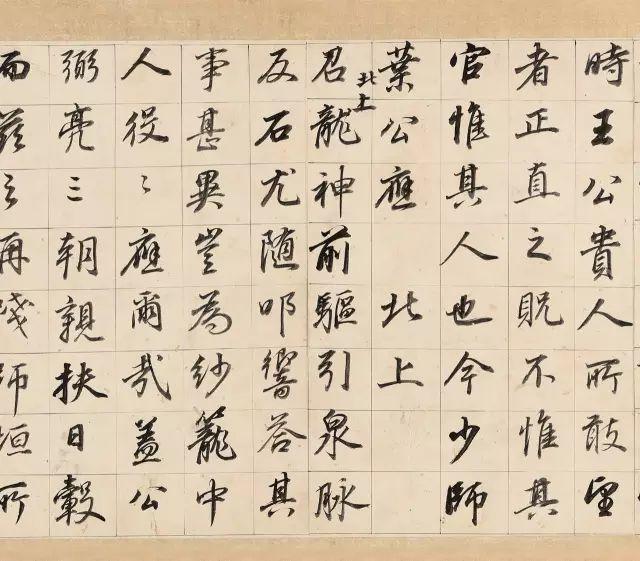 時王公貴人所敢望
者正直之貺不惟其
官惟其人也今少師
葉公應北上
北上
召龍神前驅引泉脉
反石尤随叩響答其
事甚異豈為紗籠中
人役〻應爾哉蓋公
弼亮三朝親扶日轂
而茲之再踐師垣所